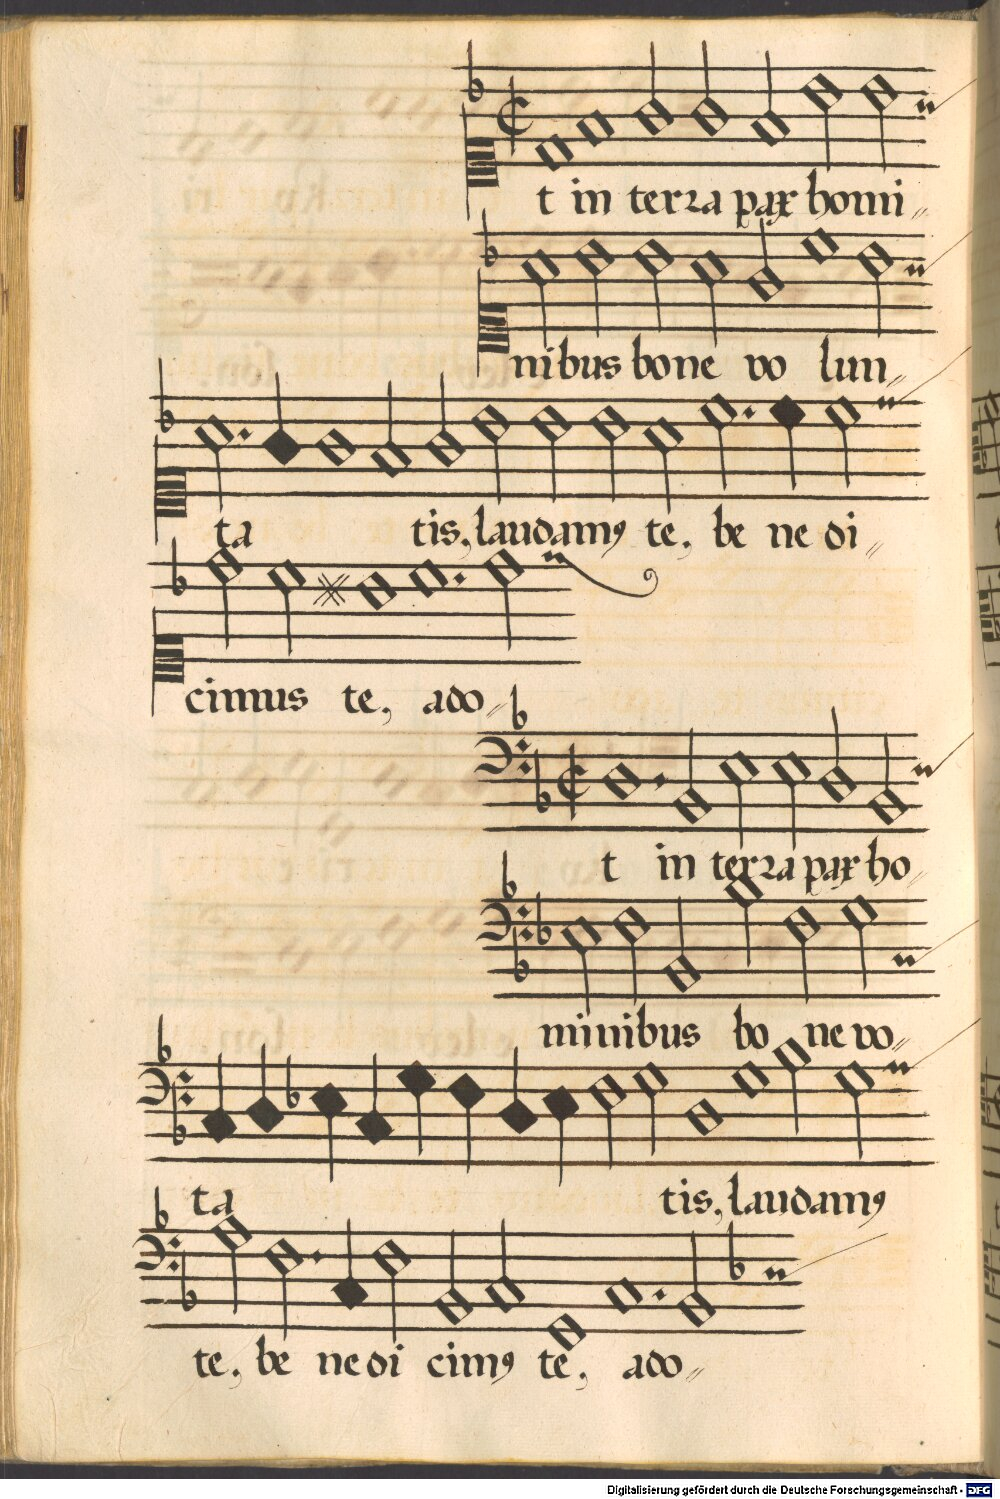 t in terra pax homi
nibus bone vo lun
ta tis, laudamꝰ te, be ne di
cimus te, ado
t in terra pax ho
minibus bo ne vo
ta tis, laudamꝰ
te, be nedi cimꝰ te, ado
Digitalisierung gefördert durch die Deutsche Forschungsgemeinschaft - DFG